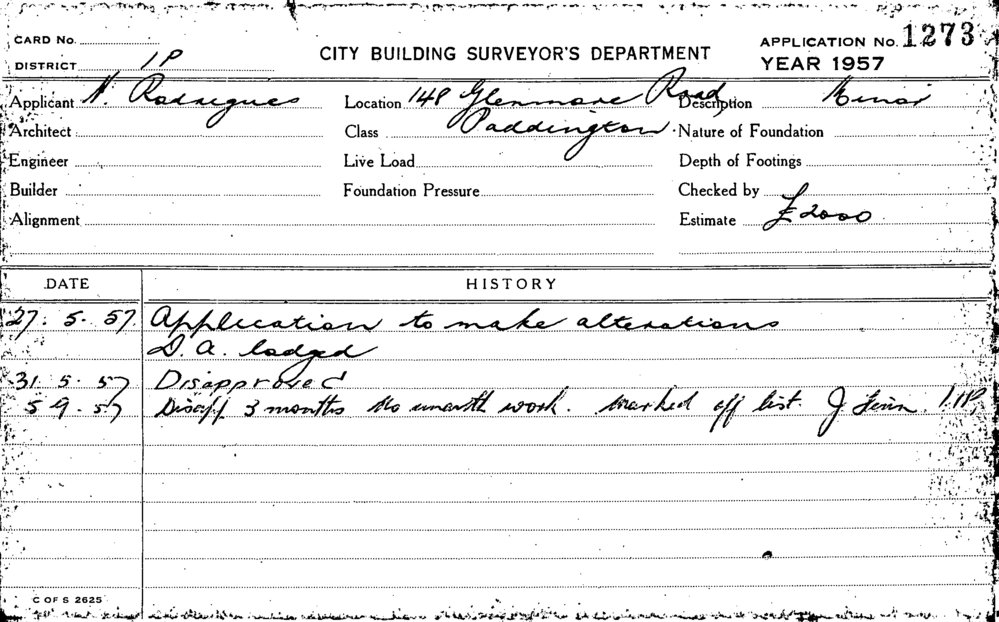 CARD No.
DISTRICT 1P
CITY BUILDING SURVEYOR'S DEPARTMENT
APPLICATION No. 1273
YEAR 1957
Applicant N. Rodrigues Location 148 Glenmore Road, Description Minor
Architect Class Paddington. Nature of Foundation
Engineer Live Load Depth of Footings
Builder Foundation Pressure Checked by
Alignment Estimate £2000
DATE HISTORY
27. 5. 57. Application to make alterations
D. A. lodged
31 5. 57 Disapproved
5 9. 57 Disapp 3 months No work. Marked off list. J 1P
C OF S 2625